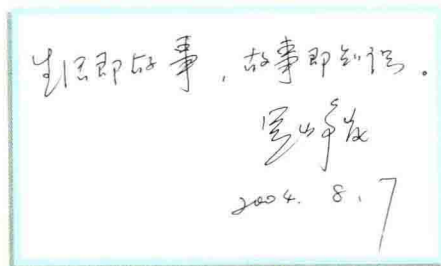 生活即故事，故事即知识。
2004. 8. 7